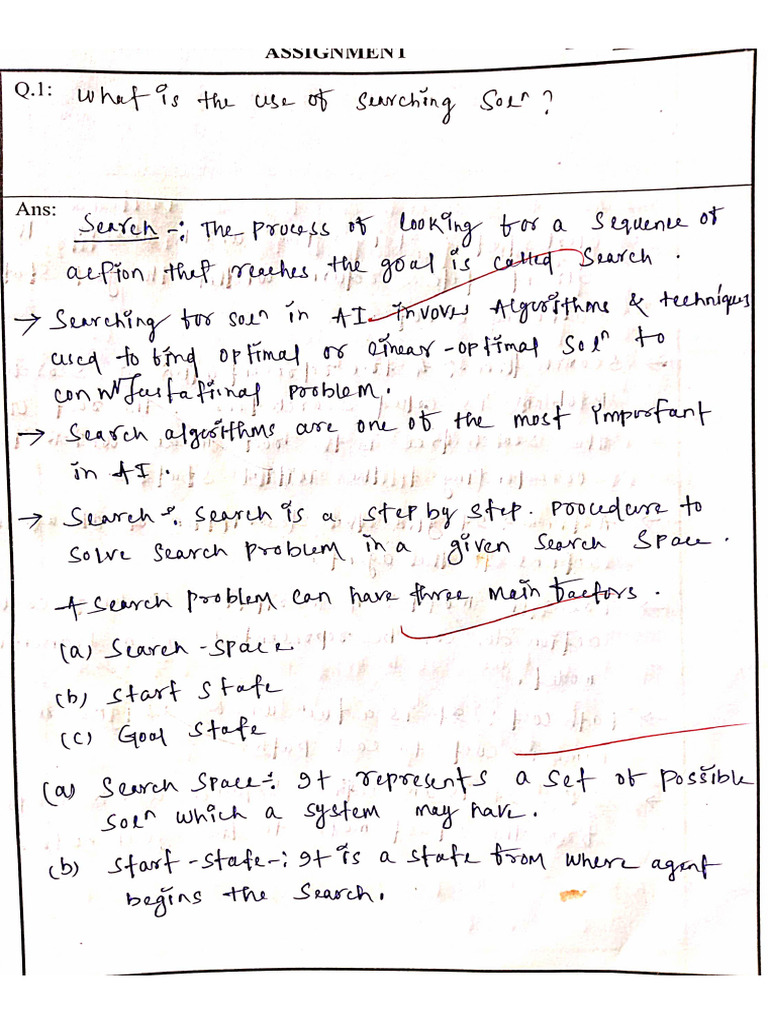 ASSIGNMENT
Q.1: What is the use of searching Solⁿ?
Ans:
Search -: The process of looking for a sequence of
action that reaches the goal is called Search.
→ Searching for solⁿ in AI invovs Algorithms & techniques
used to find optimal or linear-optimal Solⁿ to
problem.
→ Search algorithms are one of the most important
in AI.
→ Search :. Search is a step by step. Procedure to
solve search problem in a given search space.
A search problem can have three main factors.
(a) Search-space
(b) Start State
(c) Goal State
(a) Search Space-: It represents a set of possible
Solⁿ which a system may have.
(b) Start-State-: It is a state from where agent
begins the Search.